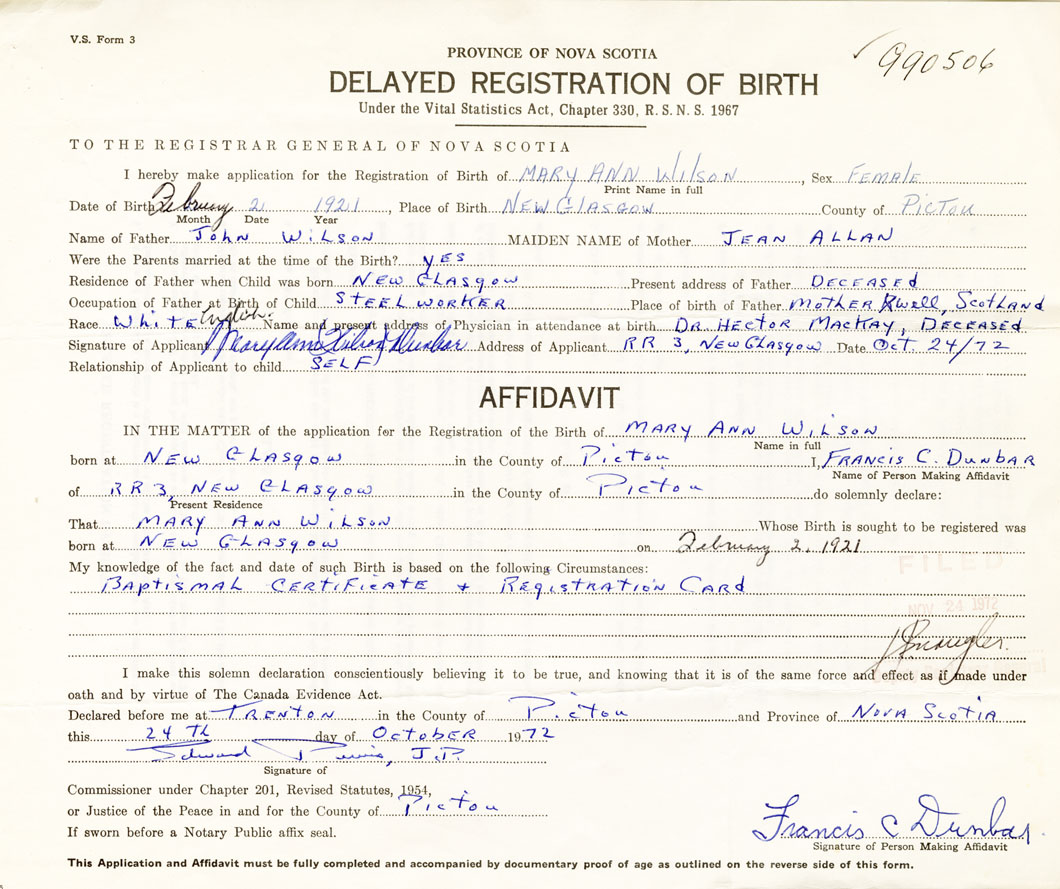 V.S. Form 3
PROVINCE OF NOVA SCOTIA
✓ 990506
DELAYED REGISTRATION OF BIRTH
Under the Vital Statistics Act, Chapter 330, R. S. N. S. 1967
TO THE REGISTRAR GENERAL OF NOVA SCOTIA
I hereby make application for the Registration of Birth of MARY ANN WILSON, Sex FEMALE
Print Name in full
Date of Birth February 2 1921, Place of Birth NEW GLASGOW County of PICTOU
Month Date Year
Name of Father JOHN WILSON MAIDEN NAME of Mother JEAN ALLAN
Were the Parents married at the time of the Birth? YES
Residence of Father when Child was born NEW GLASGOW Present address of Father DECEASED
Occupation of Father at Birth of Child STEELWORKER Place of birth of Father MOTHERWELL, SCOTLAND
Race WHITE English. Name and present address of Physician in attendance at birth DR. HECTOR MACKAY, DECEASED
Signature of Applicant Mary Ann Wilson Dunbar Address of Applicant RR 3, NEW GLASGOW Date Oct. 24/72
Relationship of Applicant to child SELF
AFFIDAVIT
IN THE MATTER of the application for the Registration of the Birth of MARY ANN WILSON
Name in full
born at NEW GLASGOW in the County of PICTOU I, FRANCIS C. DUNBAR
Name of Person Making Affidavit
of RR 3, NEW GLASGOW in the County of PICTOU do solemnly declare:
Present Residence
That MARY ANN WILSON Whose Birth is sought to be registered was
born at NEW GLASGOW on February 2, 1921
My knowledge of the fact and date of such Birth is based on the following Circumstances:
FILED
BAPTISMAL CERTIFICATE + REGISTRATION CARD
NOV 24 1972
I make this solemn declaration conscientiously believing it to be true, and knowing that it is of the same force and effect as if made under
oath and by virtue of The Canada Evidence Act.
Declared before me at TRENTON in the County of PICTOU and Province of NOVA SCOTIA
this 24 Th day of OCTOBER 1972
Edward J.P.
Signature of
Commissioner under Chapter 201, Revised Statutes, 1954,
or Justice of the Peace in and for the County of PICTOU
If sworn before a Notary Public affix seal.
Francis C Dunbar
Signature of Person Making Affidavit
This Application and Affidavit must be fully completed and accompanied by documentary proof of age as outlined on the reverse side of this form.